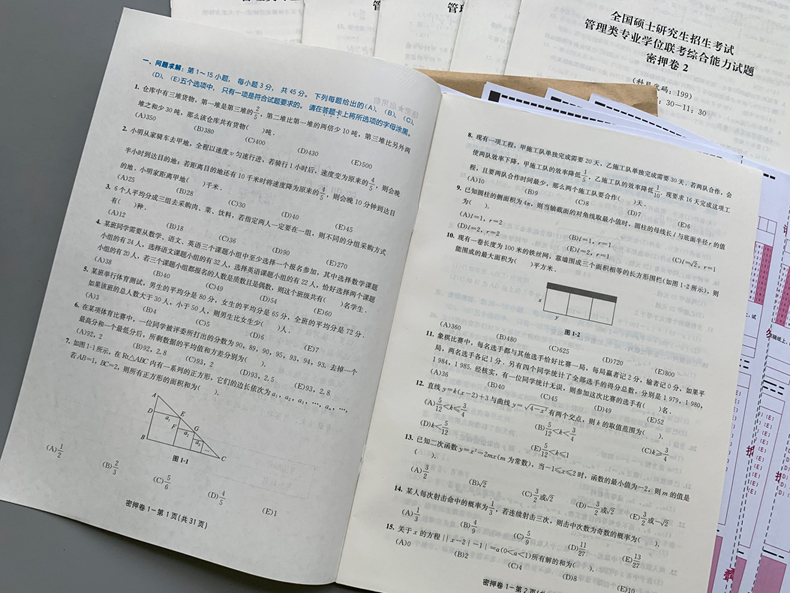 一、问题求解：第1～15小题，每小题3分，共45分。下列每题给出的(A)、(B)、(C)、
(D)、(E)五个选项中，只有一项是符合试题要求的。请在答题卡上将所选项的字母涂黑。
1. 仓库中有三堆货物，第一堆是第三堆的2/5，第二堆比第一堆的两倍少10吨，第三堆比另外两
堆之和少30吨，那么该仓库共有货物( )吨.
(A)350 (B)380 (C)400 (D)430 (E)500
2. 小明从家骑车去甲地，全程以速度v匀速行进，若骑行1小时后，速度变为原来的4/5，则会晚
半小时到达目的地；若距离目的地还有10千米时将速度降为原来的4/5，则会晚10分钟到达目
的地. 小明家距离甲地( )千米.
(A)25 (B)28 (C)30 (D)40 (E)45
3. 6个人平均分成三组去采购肉、菜、饮料，若指定两人一定要在一组，则不同的分组采购方式
有( )种.
(A)12 (B)18 (C)36 (D)90 (E)270
4. 某班同学需要从数学、语文、英语三个课题小组中至少选择一个报名参加，其中选择数学课题
小组的有24人，选择语文课题小组的有32人，选择英语课题小组的有22人，恰好选择两个课题
小组的有35人，若三个课题小组都报名的人数是质数且是偶数，则这个班级共有( )名学生.
(A)38 (B)40 (C)49 (D)54 (E)60
5. 某班举行体育测试，男生的平均分是80分，女生的平均分是65分，全班的平均分是72分.
如果该班的总人数大于30人，小于50人，则男生比女生少( )人.
(A)3 (B)4 (C)5 (D)6 (E)7
6. 在某项体育比赛中，一位同学被评委所打出的分数为90，89，90，95，93，94，93. 去掉一个
最高分和一个最低分后，所剩数据的平均值和方差分别为( ).
(A)92，2 (B)92，2.8 (C)93，2 (D)93，2.5 (E)93，2.8
7. 如图1-1所示，在Rt△ABC内有一系列的正方形，它们的边长依次为a₁，a₂，a₃，…，aₙ，…，
若AB=1，BC=2，则所有正方形的面积和为( ).
A
D E
F G
a₁ a₂ …
B C
图1-1
(A)1/2 (B)2/3 (C)5/6 (D)4/5 (E)1
密押卷1－第1页(共31页)
8. 现有一项工程，甲施工队单独完成需要20天，乙施工队单独完成需要30天. 若两队合作，会
使两队效率下降，甲施工队的效率降低1/5，乙施工队的效率降低1/10. 现要求16天完成这项工
程，且要两队合作时间最少，那么两个施工队要合作( )天.
(A)10 (B)9 (C)8 (D)7 (E)6
9. 已知圆柱的侧面积为4π，则当轴截面的对角线取最小值时，圆柱的母线长l与底面半径r的值
为( ).
(A)l=1，r=2 (B)l=1，r=1 (C)l=√2，r=1
(D)l=2，r=2 (E)l=2，r=1
10. 现有一卷长度为100米的铁丝网，靠墙围成三个面积相等的长方形围栏(如图1-2所示)，则
能围成的最大面积为( )平方米.
x
y
图1-2
(A)360 (B)480 (C)625 (D)720 (E)800
11. 象棋比赛中，每名选手都与其他选手恰好比赛一局，每局赢者记2分，输者记0分，如果平
局，两名选手各记1分. 另有四个同学统计了全部选手的得分总数，分别是1 979，1 980，
1 984，1 985，经核实，有一位同学统计无误，则参加这次比赛的选手有( )名.
(A)36 (B)40 (C)45 (D)49 (E)52
12. 直线y=k(x－2)+3与曲线y=√4－x²有两个交点，则k的取值范围为( ).
(A)5/12<k≤3/4 (B)5/12<k<3/4 (C)k≥3/4
(D)k<5/12 (E)5/12≤k≤1
13. 已知二次函数y=x²－2mx(m为常数)，当－1≤x≤2时，函数的最小值为－2，则m的值是
( ).
(A)3/2 (B)√2 (C)3/2或√2 (D)－3/2或√2 (E)3/2或－√2
14. 某人每次射击命中的概率为1/3，若连续射击三次，则击中次数为奇数的概率为( ).
(A)1/3 (B)4/9 (C)5/9 (D)11/27 (E)13/27
15. 关于x的方程||x－2|－1|=a(0<a<1)所有解的和为( ).
(A)0 (B)2 (C)4 (D)8 (E)10
密押卷1－第2页(共
全国硕士研究生招生考试
管理类专业学位联考综合能力试题
密押卷2
(科目代码：199)
30—11：30